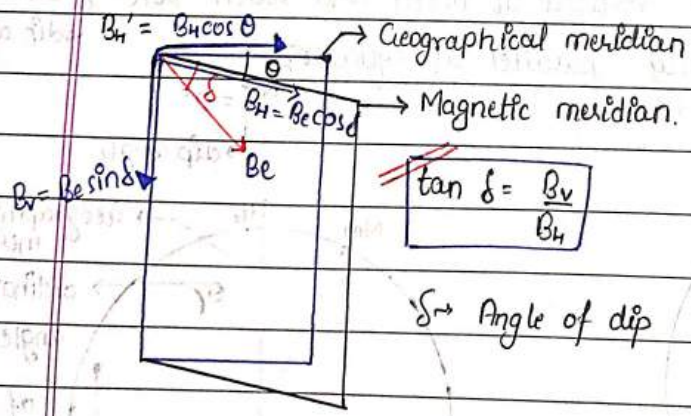 B_H' = B_H cos θ
→ Geographical meridian
θ
δ
B_H = B_e cos δ
→ Magnetic meridian.
B_e
B_v = B_e sin δ
tan δ = B_v / B_H
δ → Angle of dip